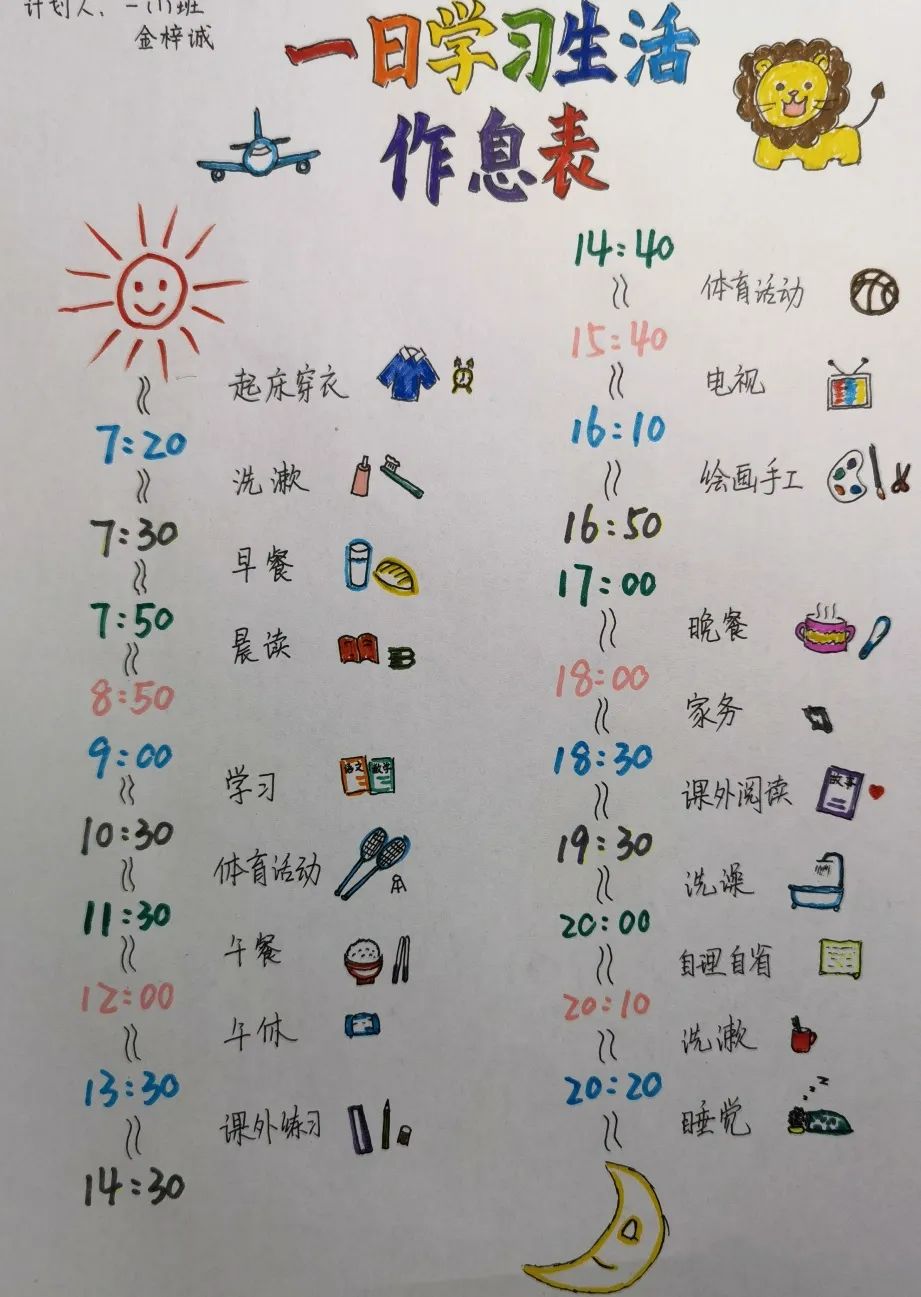 计划人：一(1)班
金梓诚
一日学习生活
作息表
起床穿衣
7:20
洗漱
7:30
早餐
7:50
晨读
8:50
9:00
学习
语文 数学
10:30
体育活动
11:30
午餐
12:00
午休
13:30
课外练习
14:30
14:40
体育活动
15:40
电视
16:10
绘画手工
16:50
17:00
晚餐
18:00
家务
18:30
课外阅读
故事
19:30
洗澡
20:00
自理自省
20:10
洗漱
20:20
睡觉
z z